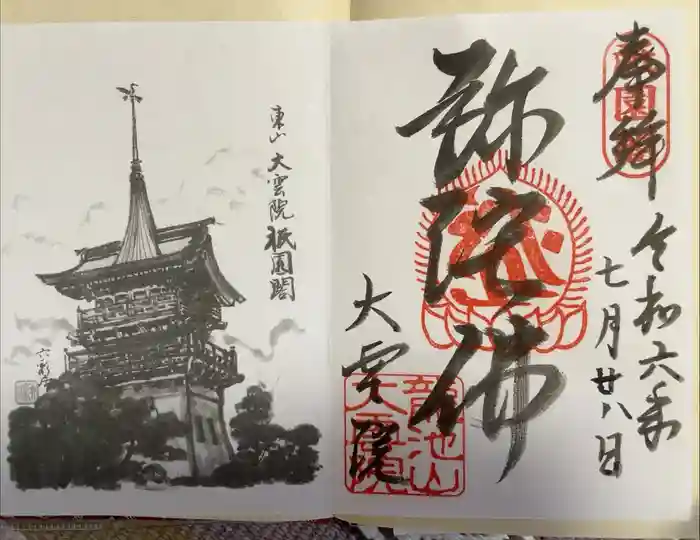 奉鉾
令和六年
七月廿八日
弥陀佛
大雲院
龍池山
大雲院
東山 大雲院 祇園閣